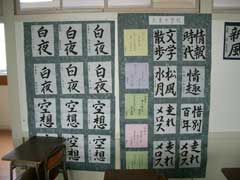 新風
情報
時代
文学
散歩
情趣
松風
水月
惜別
百年
走れ
メロス
走れ
メロス
走れ
メロス
白夜
白夜
白夜
白夜
白夜
白夜
空想
空想
空想
空想
空想
空想